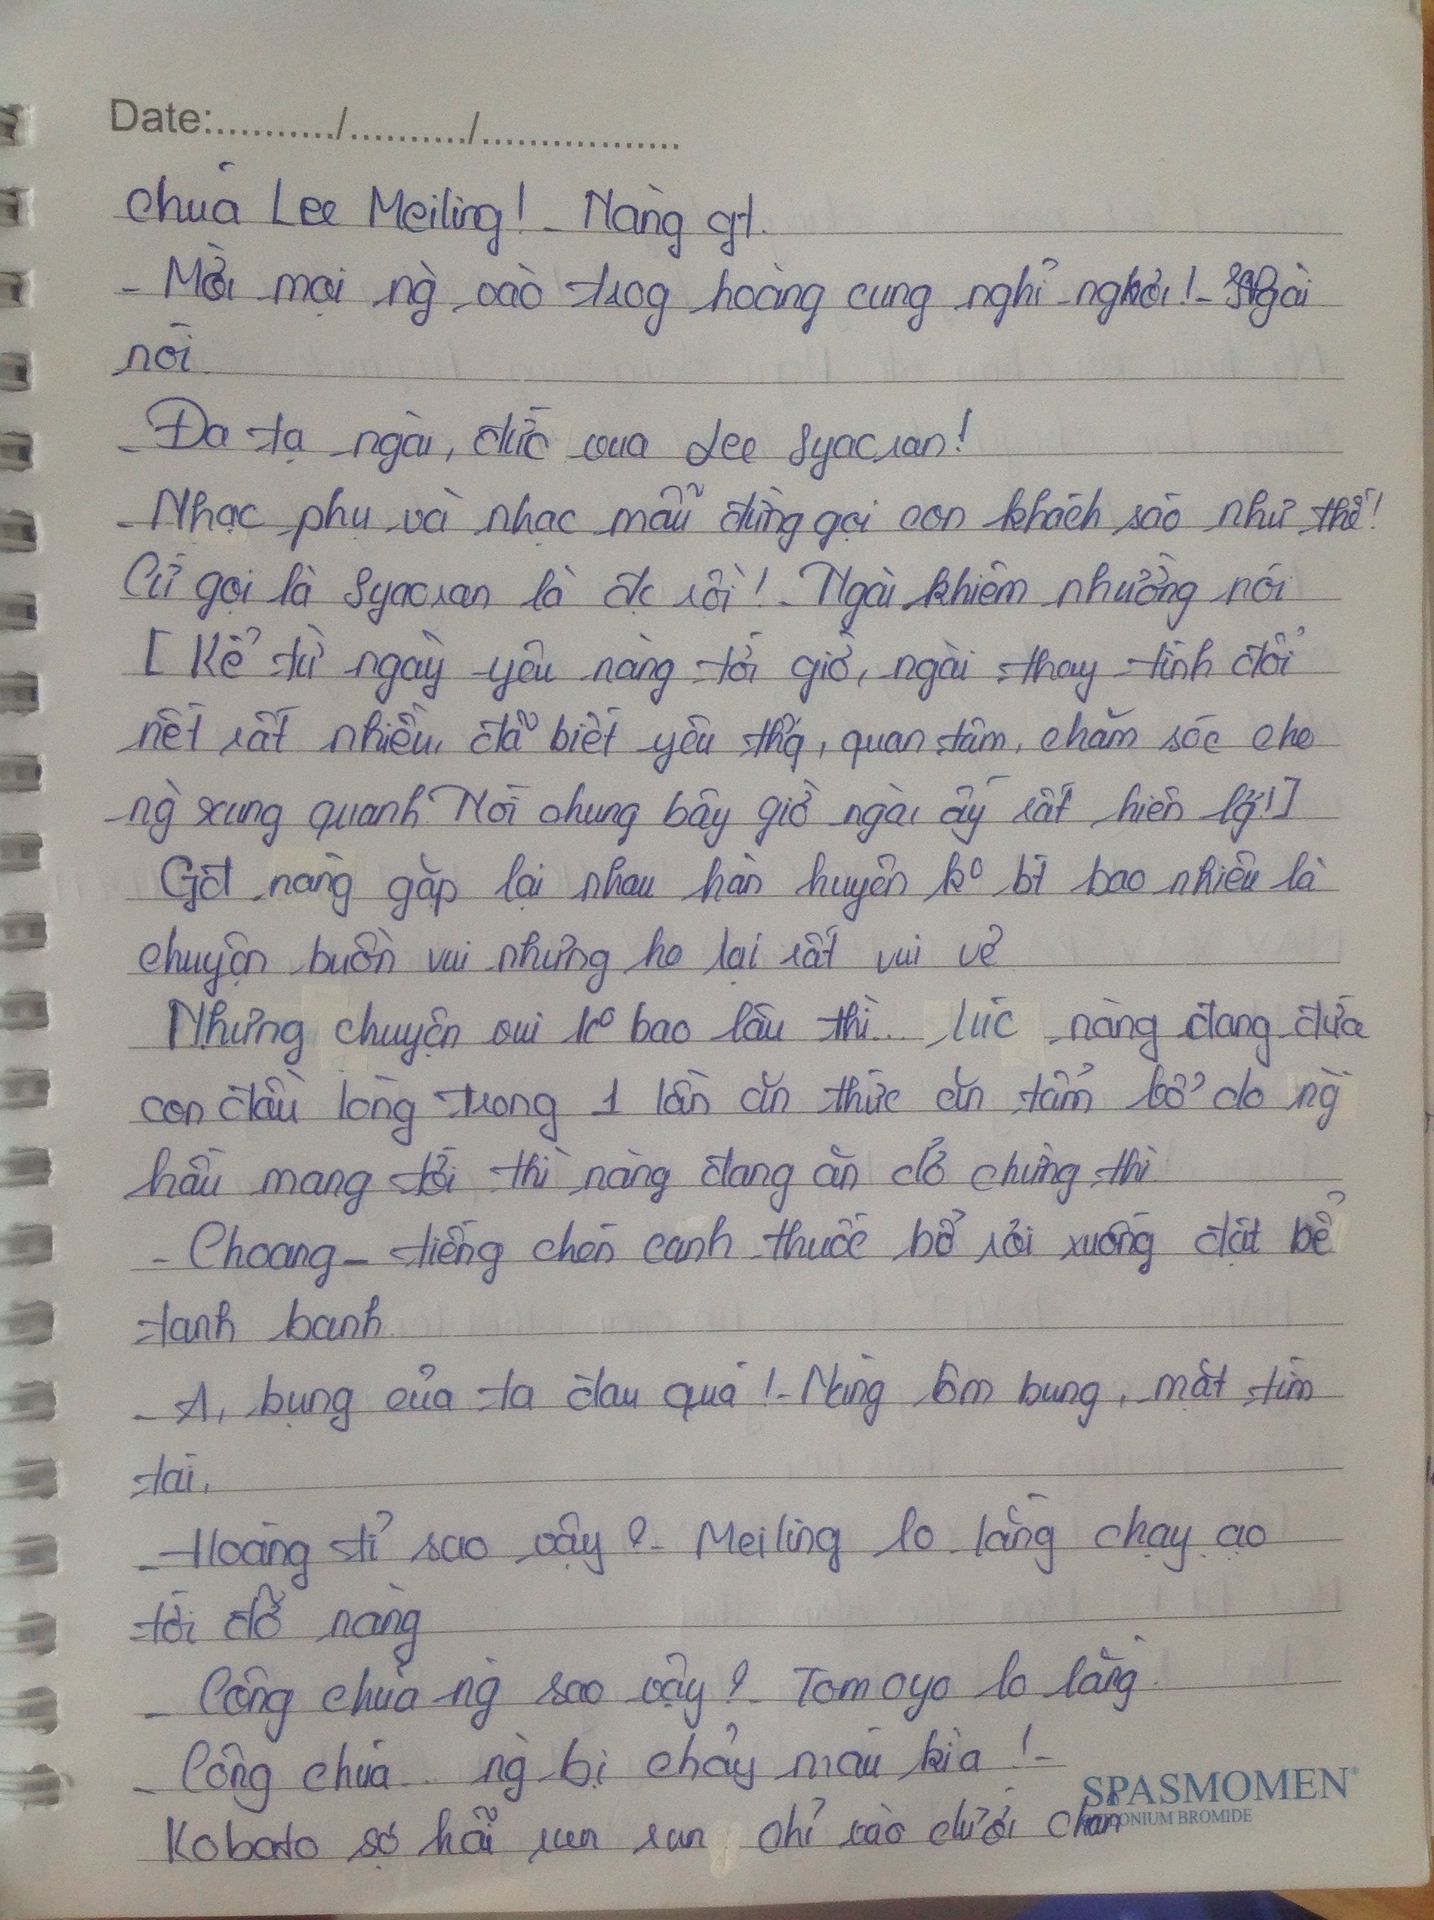 Date:.........../.........../.................
chúa Lee Meiling! - Nàng gt.
- Mời mọi ng` vào trog hoàng cung nghỉ ngơi! - Ngài
nói
- Đa tạ ngài, đức vua Lee Syaoran!
- Nhạc phụ và nhạc mẫu đừng gọi con khách sáo như thế!
Cứ gọi là Syaoran là đc rồi! - Ngài khiêm nhường nói
[ Kể từ ngày yêu nàng tới giờ, ngài thay tính đổi
nết rất nhiều, đã biết yêu thg, quan tâm, chăm sóc cho
ng` xung quanh. Nói chung bây giờ ngài ấy rất hiền lý!]
Gđ nàng gặp lại nhau hàn huyên ko bt bao nhiêu là
chuyện buồn vui nhưng họ lại rất vui vẻ
Nhưng chuyện vui ko bao lâu thì... lúc nàng đang đứa
con đầu lòng trong 1 lần ăn thức ăn tẩm bổ do ng`
hầu mang tới thì nàng đang ăn dở chừng thì
- Choang - tiếng chén canh thuốc bổ rơi xuống đất bể
tanh banh
- A, bụng của ta đau quá! - Nàng ôm bụng, mặt tím
tái,
- Hoàng tỉ sao vậy? - Meiling lo lắng chạy ào
tới đỡ nàng
- Công chúa ng` sao vậy? - Tomoyo lo lắng
- Công chúa... ng` bị chảy máu kìa! -
Kobato sợ hãi run run chỉ vào dưới chân
SPASMOMEN®
BROMIDE